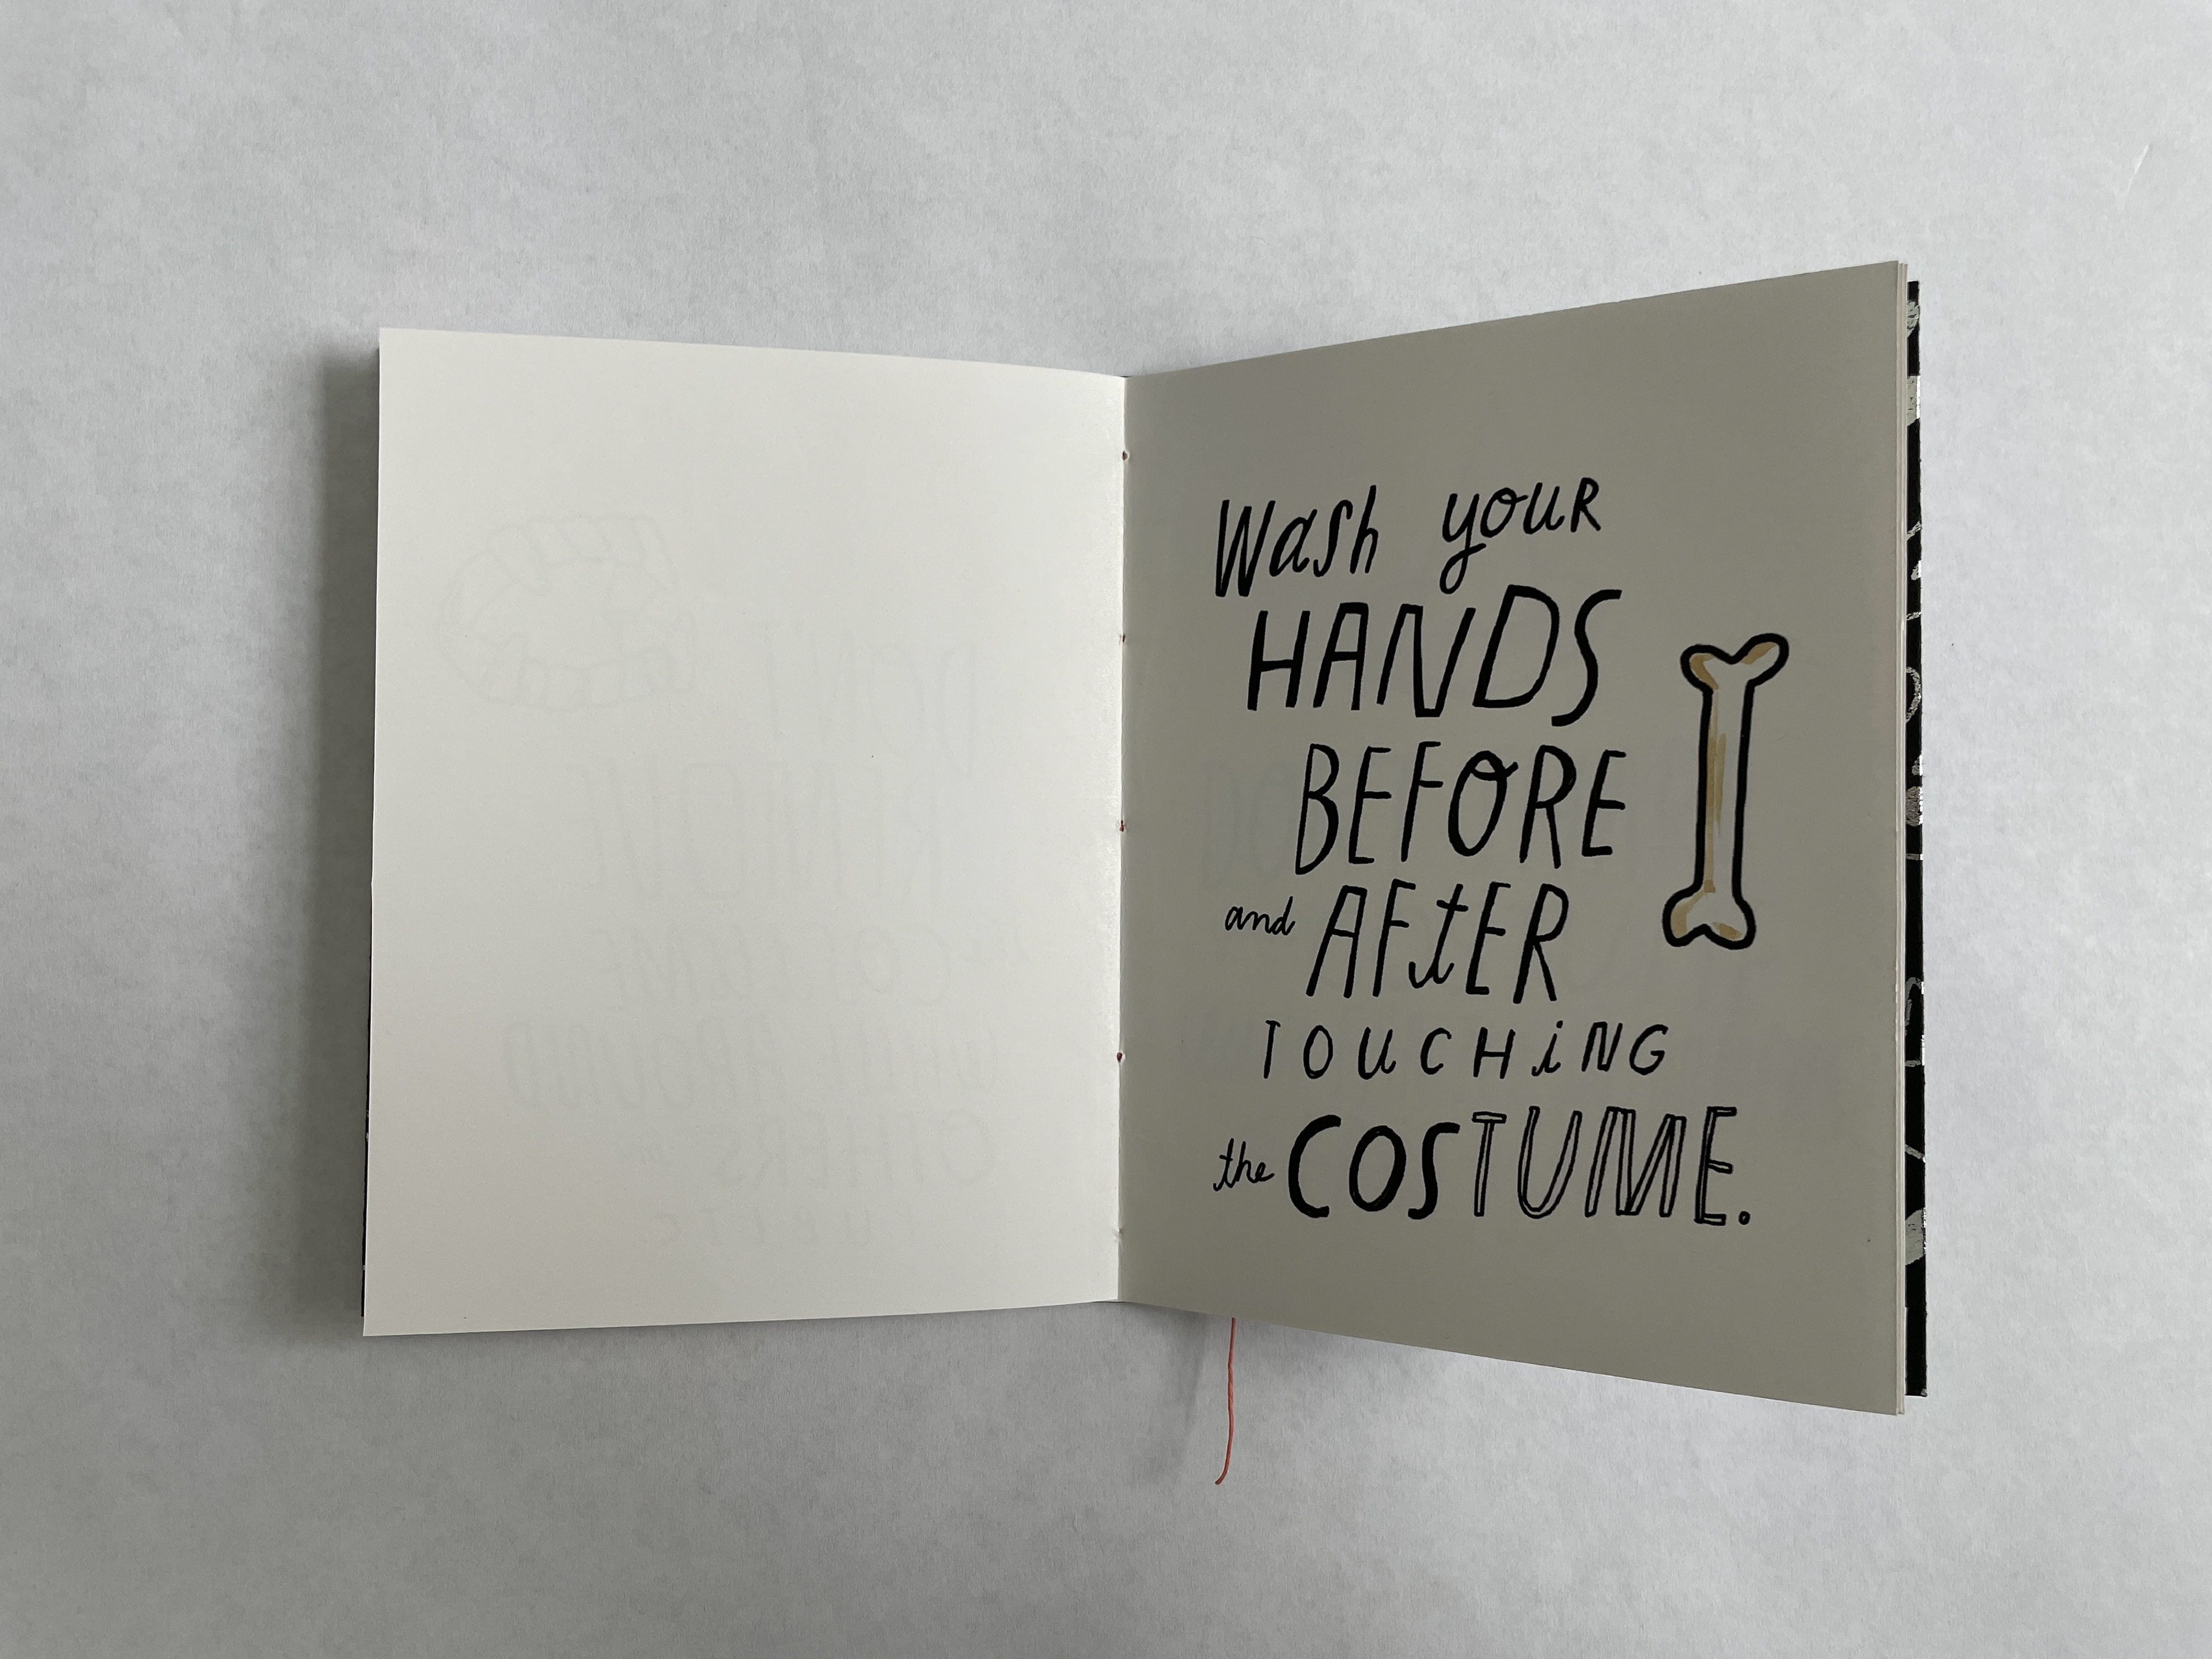 Wash your
HANDS
BEFORE
and AFtER
TOUCHiNG
the COSTUME.